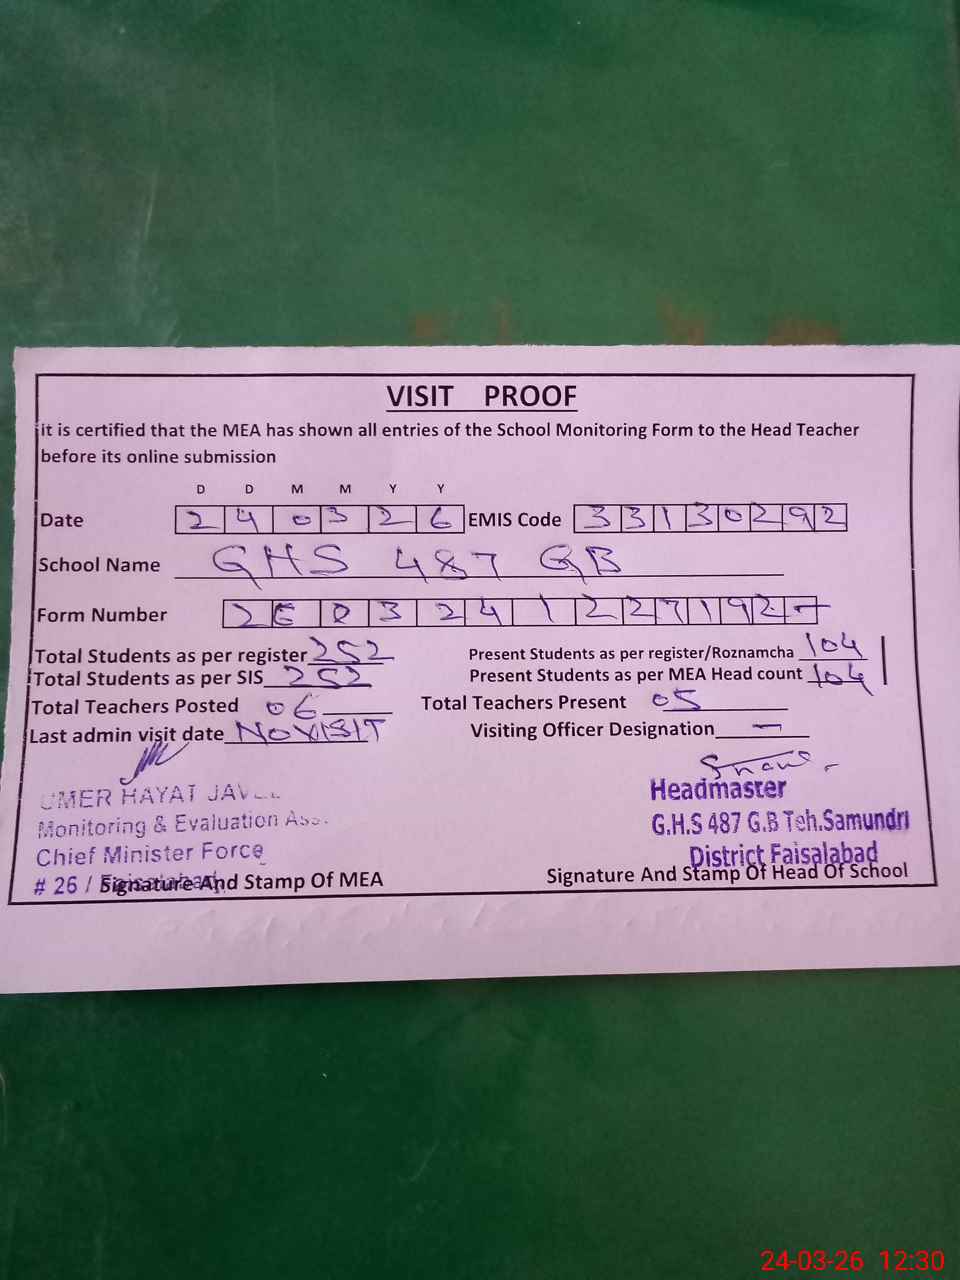 VISIT PROOF
it is certified that the MEA has shown all entries of the School Monitoring Form to the Head Teacher
before its online submission
D D M M Y Y
Date 2 4 0 3 2 6 EMIS Code 3 3 1 3 0 2 9 2
School Name GHS 487 GB
Form Number 2 6 0 3 2 4 1 2 2 7 1 9 2 -
Total Students as per register 252 Present Students as per register/Roznamcha 104
Total Students as per SIS 252 Present Students as per MEA Head count 104
Total Teachers Posted 06 Total Teachers Present 05
Last admin visit date NOVISIT Visiting Officer Designation -
UMER HAYAT
Monitoring & Evaluation
Chief Minister Force
# 26 / Faisalabad
Signature And Stamp Of MEA
Headmaster
G.H.S 487 G.B Teh.Samundri
District Faisalabad
Signature And Stamp Of Head Of School
24-03-26 12:30